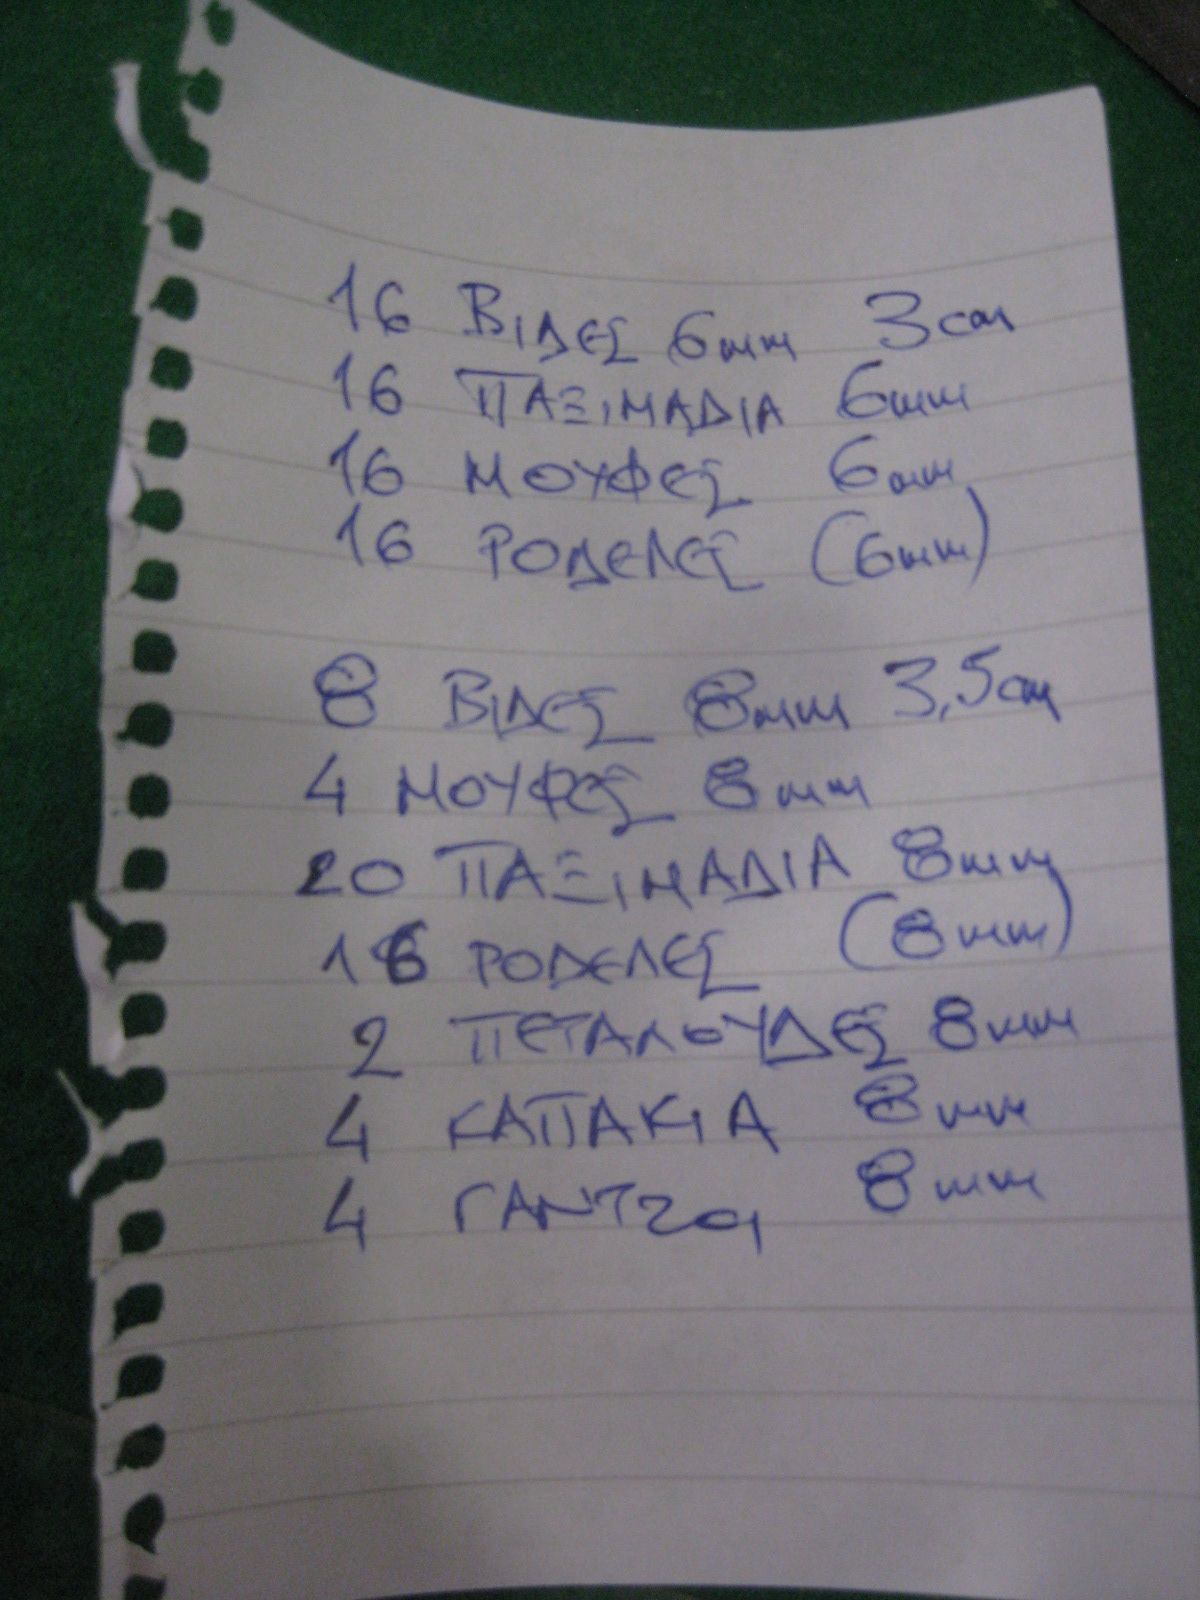 16 ΒΙΔΕΣ 6mm 3cm
16 ΠΑΞΙΜΑΔΙΑ 6mm
16 ΜΟΥΦΕΣ 6mm
16 ΡΟΔΕΛΕΣ (6mm)
8 ΒΙΔΕΣ 8mm 3,5cm
4 ΜΟΥΦΕΣ 8mm
20 ΠΑΞΙΜΑΔΙΑ 8mm
16 ΡΟΔΕΛΕΣ (8mm)
2 ΠΕΤΑΛΟΥΔΕΣ 8mm
4 ΚΑΠΑΚΙΑ 8mm
4 ΓΑΝΤΖΟΙ 8mm